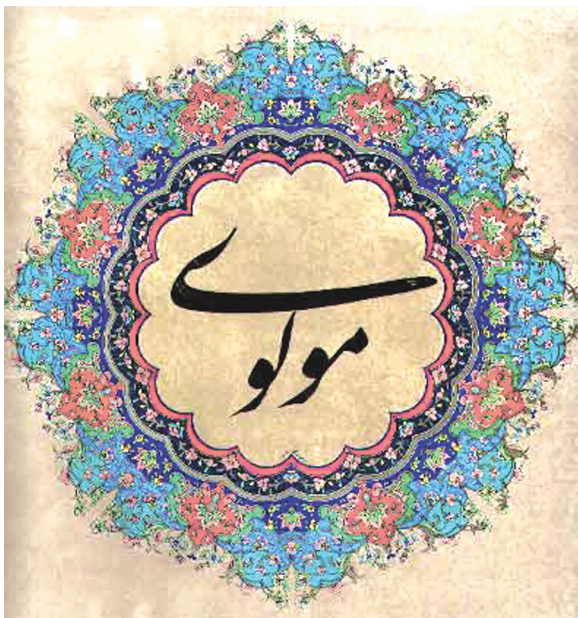 مولوی